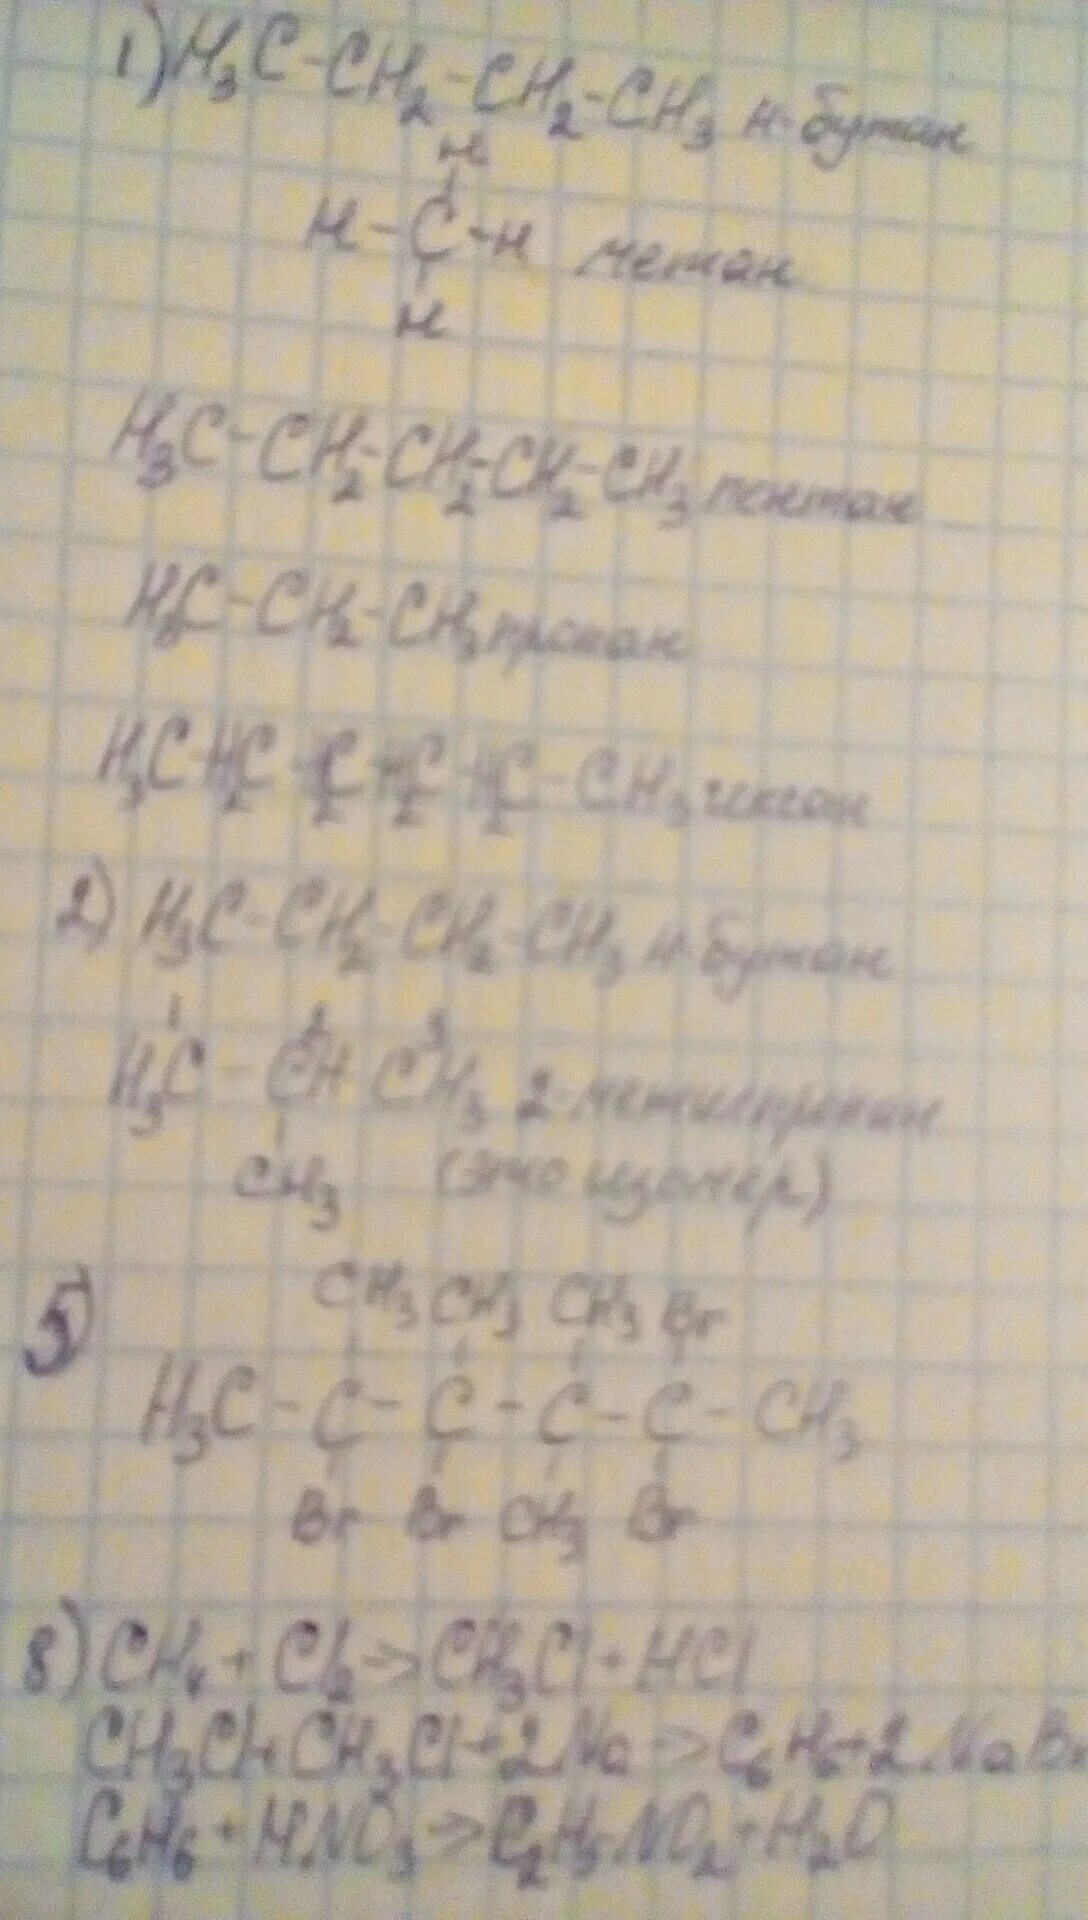 1) H₃C-CH₂-CH₂-CH₃ н-бутан
H
H-C-H метан
H
H₃C-CH₂-CH₂-CH₂-CH₃ пентан
H₃C-CH₂-CH₃ пропан
H₃C-H₂C-C₂-H₂C-H₂C-CH₃ гексан
2) H₃C-CH₂-CH₂-CH₃ н-бутан
1 2 3
H₃C-CH CH₃ 2-метилпропан
CH₃ (это изомер)
5) CH₃ CH₃ CH₃ Br
H₃C-C-C-C-C-CH₃
Br Br CH₃ Br
8) CH₄+Cl₂->CH₃Cl+HCl
CH₃Cl+CH₃Cl+2Na->C₆H₆+2NaBr
C₆H₆+HNO₃->C₂H₅NO₂+H₂O